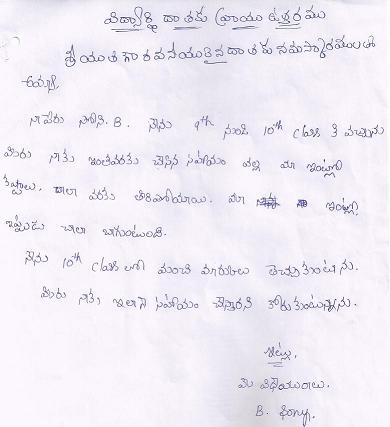 విద్యార్థి దాతకు వ్రాయు ఉత్తరము
శ్రీయుత గౌరవనీయులైన దాతకు నమస్కారములతో
అయ్యా,
నా పేరు సోని. B. నేను 9th నుండి 10th class కి వచ్చాను
మీరు నాకు ఇంతవరకు చేసిన సహాయం వల్ల మా ఇంట్లో
కష్టాలు, చాలా వరకు తీరిపోయాయి. మా ఇంట్లో
ఇప్పుడు చాలా బాగుంటుంది.
నేను 10th class లో మంచి మార్కులు తెచ్చుకుంటాను.
మీరు నాకు ఇలానే సహాయం చేస్తారని కోరుకుంటున్నాను.
ఇట్లు,
మీ విధేయురాలు.
B. Sony.